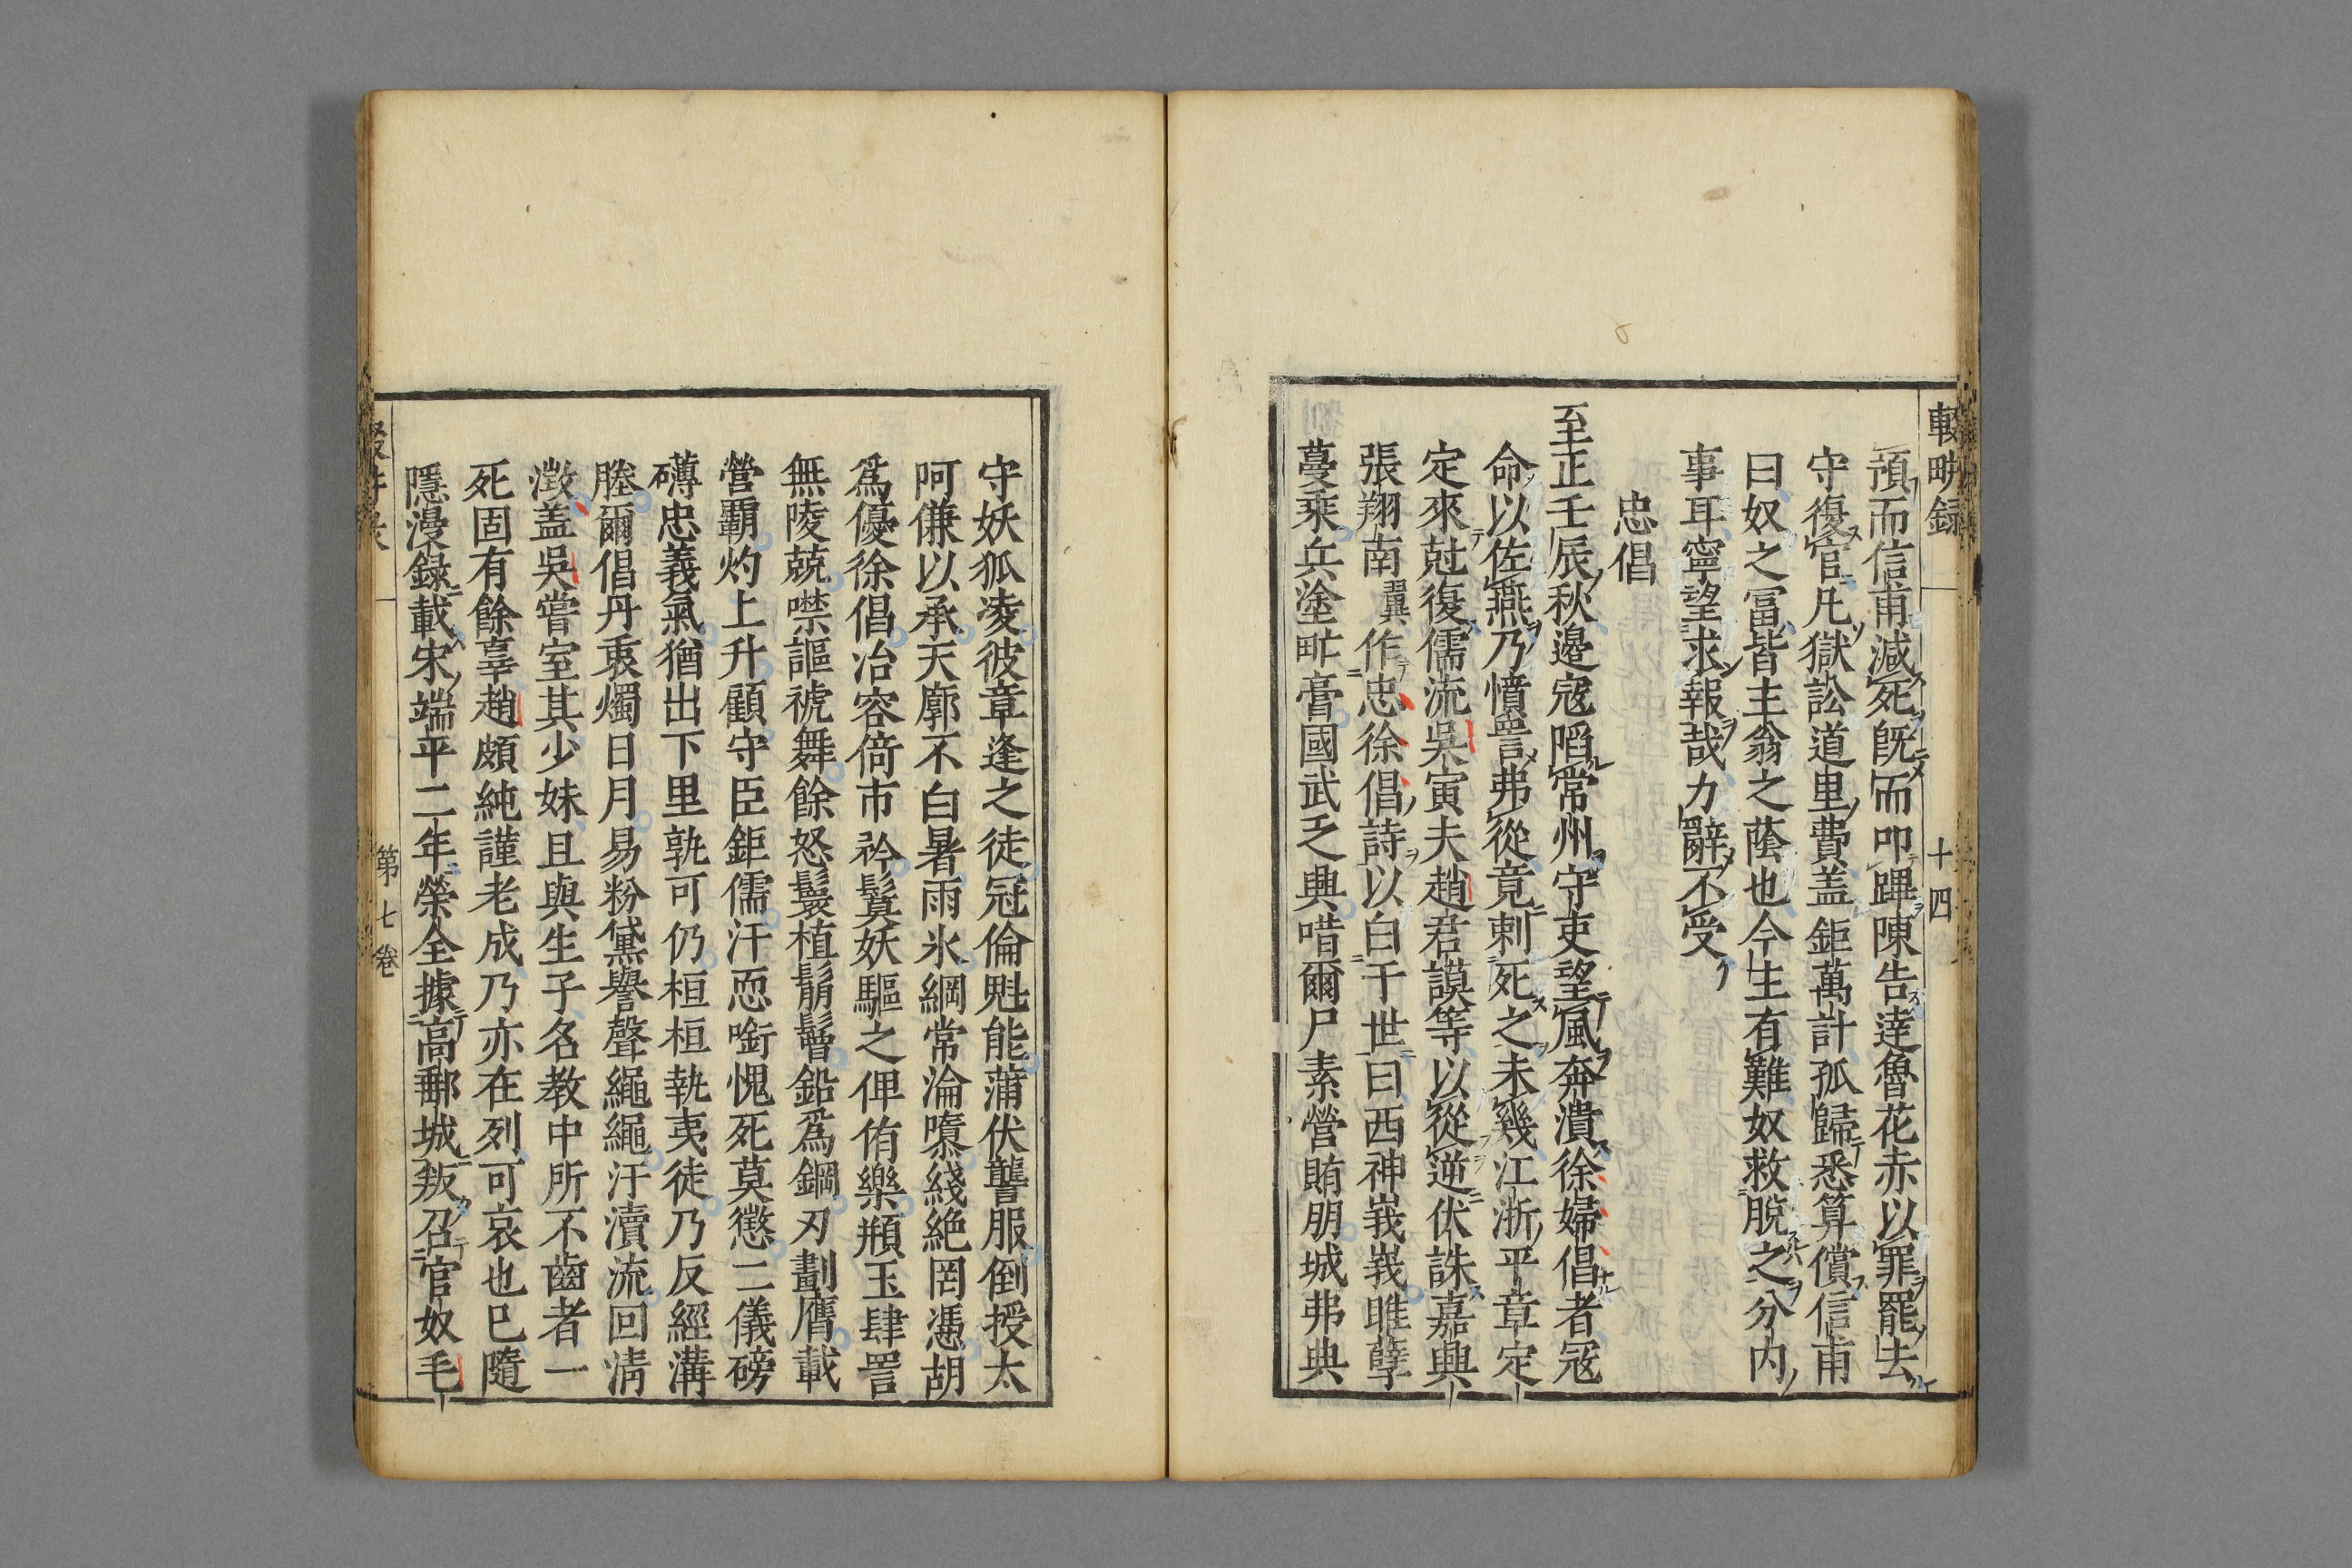 輟畊録
十四
預而信甫減死既而叩蹕陳告達魯花赤以罪罷去
守復官凡獄訟道里費盖鉅萬計孤歸悉算償信甫
曰奴之冨皆主翁之蔭也今生有難奴救脱之分内
事耳寧望求報哉力辭不受
忠倡
至正壬辰秋邉宼䧟常州守吏望風奔潰徐婦倡者冦
命以佐燕乃憤詈弗從竟剌死之未幾江浙平章定
定來尅復儒流呉寅夫趙君謨等以從逆伏誅嘉興
張翔南翼作忠徐倡詩以白于世曰西神峩峩雎孽
蔓乘兵塗畊膏國武乏典唶爾尸素營賄朋城弗典
守妖狐凌彼章逢之徒冠倫魁能蒲伏聾服倒授太
呵傔以承天廓不白暑雨氷綱常淪隳綫絶罔憑胡
爲優徐倡冶容倚市衿鬒妖驅之俾侑樂頩玉肆詈
無陵兢噤謳褫舞餘怒鬟植鬅鬙鉛爲鋼刃劃膺載
營霸灼上升顧守臣鉅儒汗恧衘愧死莫懲二儀磅
礴忠義氣猶出下里孰可仍桓桓執夷徒乃反經溝
塍爾倡丹衷燭日月易粉黛譽聲繩繩汙瀆流回淸
澂盖呉嘗室其少妹且與生子名教中所不齒者一
死固有餘辜趙頗純謹老成乃亦在列可哀也巳隨
隱漫録載宋端平二年榮全據高郵城叛召官奴毛
第七卷